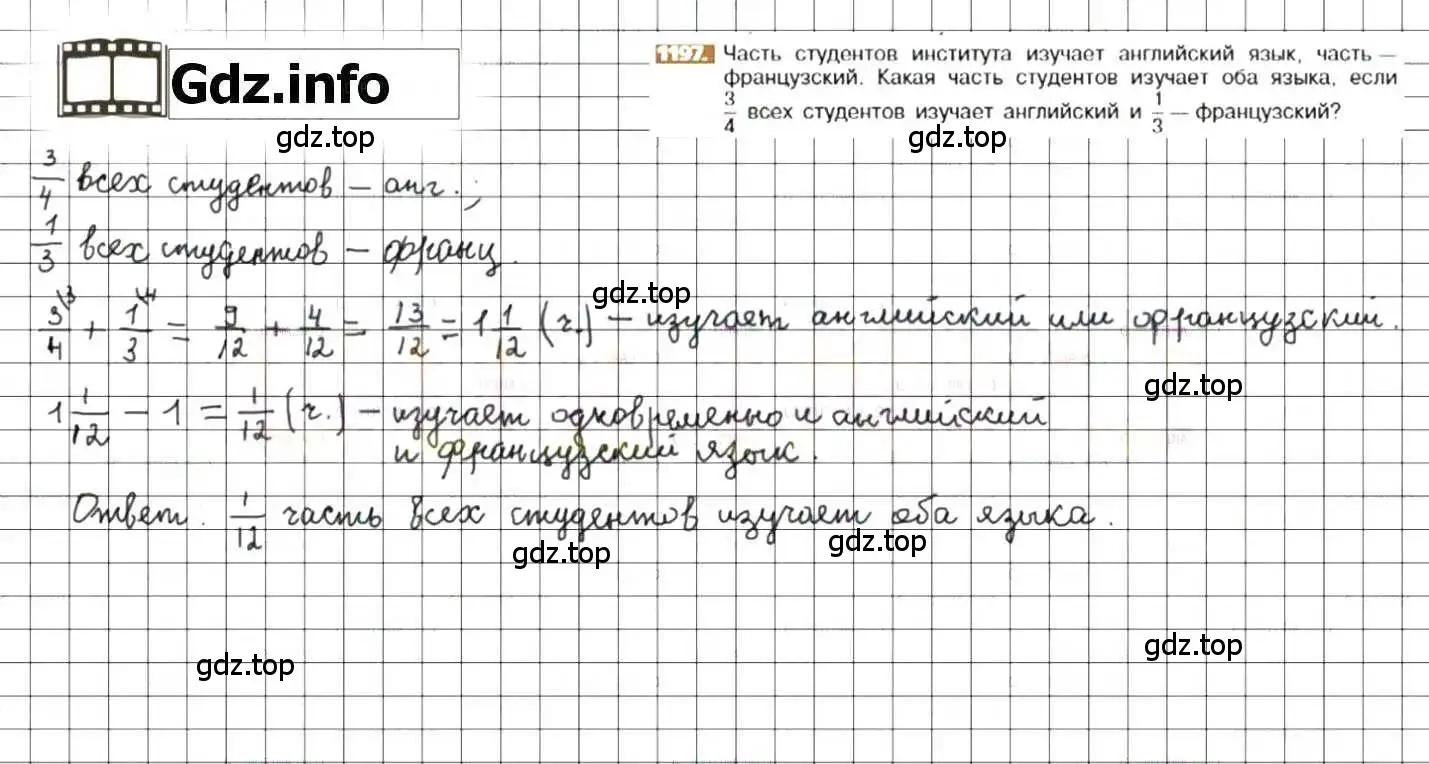 Gdz.info
gdz.top
1197. Часть студентов института изучает английский язык, часть —
французский. Какая часть студентов изучает оба языка, если
3/4 всех студентов изучает английский и 1/3 — французский?
gdz.top
3/4 всех студентов – анг.;
1/3 всех студентов – франц.
gdz.top
3/4\3 + 1/3\4 = 9/12 + 4/12 = 13/12 = 1 1/12 (ч.) – изучает английский или французский.
gdz.top
1 1/12 – 1 = 1/12 (ч.) – изучает одновременно и английский
и французский язык.
Ответ. 1/12 часть всех студентов изучает оба языка.
gdz.top
gdz.top
gdz.top
gdz.top